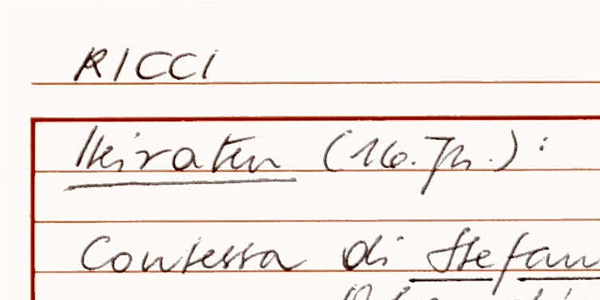 RICCI
Heiraten (16. Jh.):
Contessa di Stefan